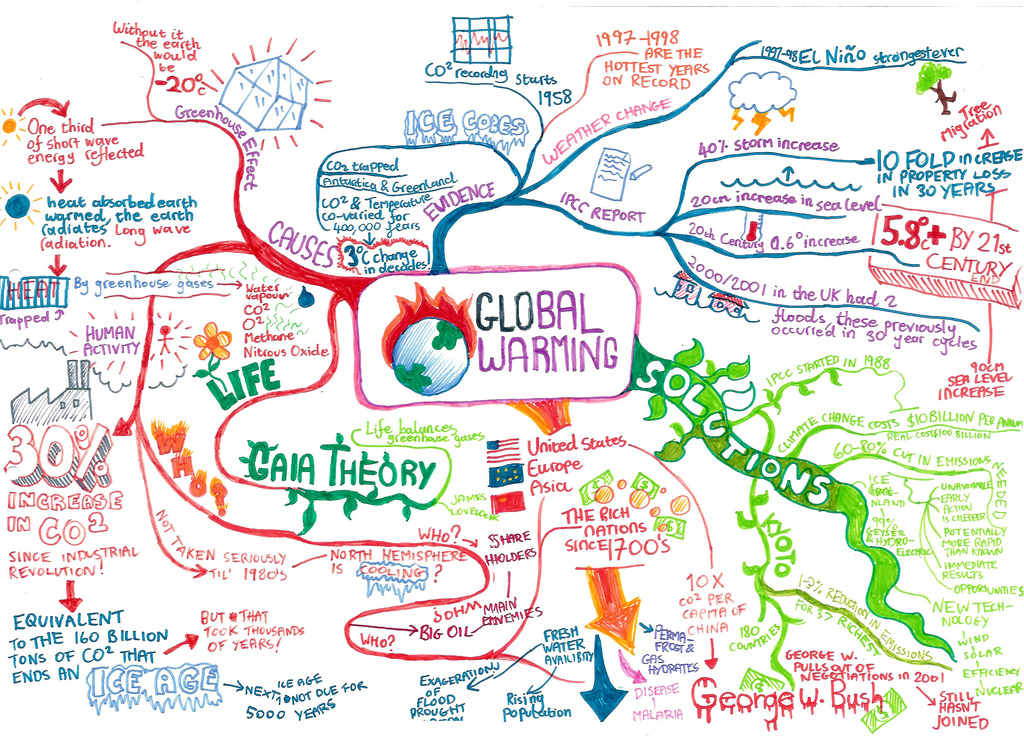 Without it
the earth
would
be
-20°C
Greenhouse Effect
One third
of short wave
energy reflected
heat absorbed earth
warmed, the earth
radiates long wave
radiation.
HEAT
Trapped
By greenhouse gases
Water
vapour
CO²
O²
Methane
Nitrous Oxide
CAUSES
HUMAN
ACTIVITY
30%
INCREASE
IN CO²
SINCE INDUSTRIAL
REVOLUTION!
EQUIVALENT
TO THE 160 BILLION
TONS OF CO² THAT
ENDS AN
ICE AGE
BUT THAT
TOOK THOUSANDS
OF YEARS!
NEXT ICE AGE
NOT DUE FOR
5000 YEARS
LIFE
GAIA THEORY
Life balances
greenhouse gases
JAMES
LOVELOCK
WHO?
NOT TAKEN SERIOUSLY
TIL' 1980'S
NORTH HEMISPHERE
IS COOLING?
WHO?
SHARE
HOLDERS
MAIN
ENEMIES
JOHN
WHO?
BIG OIL
GLOBAL
WARMING
CO² recording starts
1958
ICE CORES
CO2 trapped
Antartica & Greenland
CO² & Temperature
co-varied for
400,000 years
3°C change
in decades!
EVIDENCE
1997-1998
ARE THE
HOTTEST YEARS
ON RECORD
WEATHER CHANGE
1997-98 EL Niño strongest ever
IPCC REPORT
40% storm increase
10 FOLD INCREASE
IN PROPERTY LOSS
IN 30 YEARS
Tree
Migration
20cm increase in sea level
20th Century 0.6° increase
5.8°C+ BY 21st
CENTURY
END
2000/2001 in the UK had 2
floods, these previously
occurred in 30 year cycles
90cm
SEA LEVEL
INCREASE
SOLUTIONS
IPCC STARTED IN 1988
CLIMATE CHANGE COSTS $10 BILLION PER ANNUM
REAL COST $100 BILLION
60-80% CUT IN EMISSIONS
NEEDED
ICE
LAND
99%
GEYSER
& HYDRO-
ELECTRIC
UNAVOIDABLE
EARLY
ACTION
IS CHEAPER
POTENTIALLY
MORE RAPID
THAN KNOWN
IMMEDIATE
RESULTS
OPPORTUNITIES
NEW TECH-
NOLOGY
WIND
SOLAR
EFFICIENCY
NUCLEAR
KYOTO
1-3% REDUCTION IN EMISSIONS
FOR 37 RICHEST
180
COUNTRIES
GEORGE W.
PULLS OUT OF
NEGOTIATIONS IN 2001
STILL
HASN'T
JOINED
George W. Bush
United States
Europe
Asia
THE RICH
NATIONS
SINCE 1700'S
10 X
CO² PER
CAPITA OF
CHINA
FRESH
WATER
AVAILIBITY
EXAGERATION
OF
FLOOD
DROUGHT
Rising
population
PERMA-
FROST &
GAS
HYDRATES
DISEASE
MALARIA